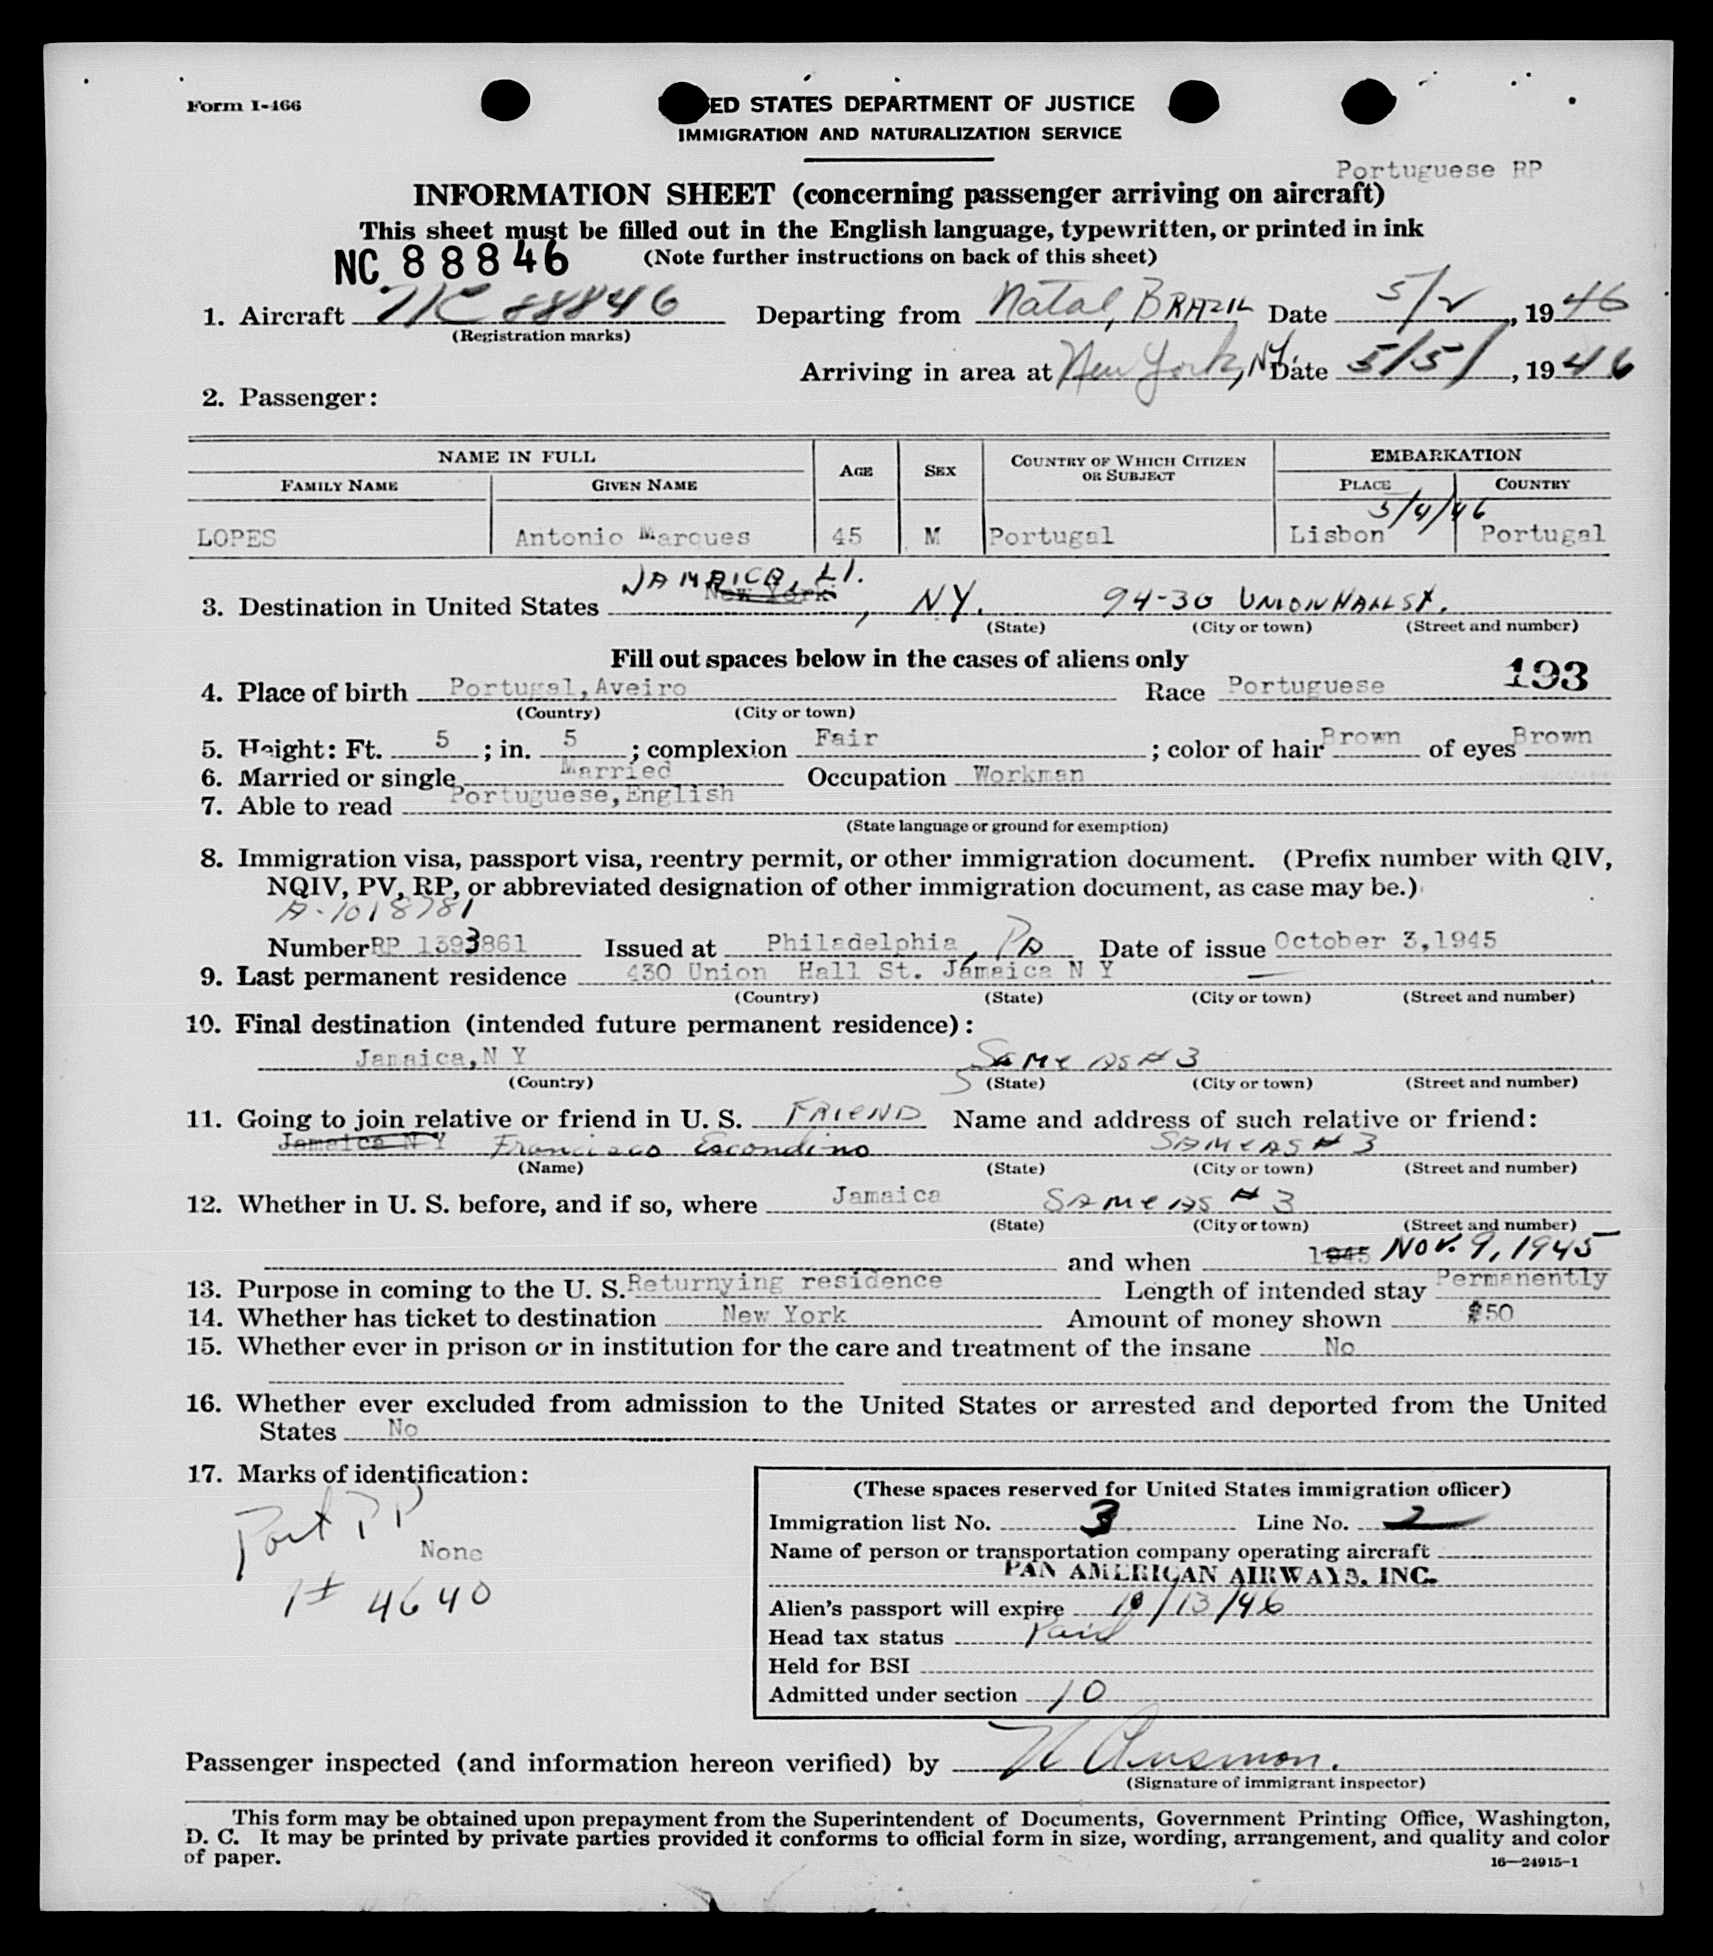 Form I-466
ED STATES DEPARTMENT OF JUSTICE
IMMIGRATION AND NATURALIZATION SERVICE
Portuguese RP
INFORMATION SHEET (concerning passenger arriving on aircraft)
This sheet must be filled out in the English language, typewritten, or printed in ink
NC 88846 (Note further instructions on back of this sheet)
1. Aircraft NC 88846 Departing from Natal, BRAZIL Date 5/2, 1946
(Registration marks)
Arriving in area at New York, NY. Date 5/5/, 1946
2. Passenger:
NAME IN FULL AGE SEX COUNTRY OF WHICH CITIZEN OR SUBJECT EMBARKATION
FAMILY NAME GIVEN NAME PLACE COUNTRY
5/4/46
LOPES Antonio Marques 45 M Portugal Lisbon Portugal
JAMAICA, LI.
3. Destination in United States New York, NY. 94-30 UNION HALL ST.
(State) (City or town) (Street and number)
Fill out spaces below in the cases of aliens only
193
4. Place of birth Portugal, Aveiro Race Portuguese
(Country) (City or town)
5. Height: Ft. 5; in. 5; complexion Fair; color of hair Brown of eyes Brown
6. Married or single Married Occupation Workman
7. Able to read Portuguese, English
(State language or ground for exemption)
8. Immigration visa, passport visa, reentry permit, or other immigration document. (Prefix number with QIV,
NQIV, PV, RP, or abbreviated designation of other immigration document, as case may be.)
A-1018781
Number RP 1393861 Issued at Philadelphia, PA Date of issue October 3,1945
9. Last permanent residence 430 Union Hall St. Jamaica N Y
(Country) (State) (City or town) (Street and number)
10. Final destination (intended future permanent residence):
Jamaica,N Y SAME AS # 3
(Country) (State) (City or town) (Street and number)
11. Going to join relative or friend in U. S. FRIEND Name and address of such relative or friend:
Jamaica N Y Francisco Escondino SAME AS # 3
(Name) (State) (City or town) (Street and number)
12. Whether in U. S. before, and if so, where Jamaica SAME AS # 3
(State) (City or town) (Street and number)
and when 1945 Nov. 9, 1945
13. Purpose in coming to the U. S. Returnying residence Length of intended stay Permanently
14. Whether has ticket to destination New York Amount of money shown $50
15. Whether ever in prison or in institution for the care and treatment of the insane No
16. Whether ever excluded from admission to the United States or arrested and deported from the United
States No
17. Marks of identification:
Port PP
None
# 4640
(These spaces reserved for United States immigration officer)
Immigration list No. 3 Line No. 2
Name of person or transportation company operating aircraft
PAN AMERICAN AIRWAYS, INC.
Alien's passport will expire 10/13/46
Head tax status Paid
Held for BSI
Admitted under section 10
Passenger inspected (and information hereon verified) by
(Signature of immigrant inspector)
This form may be obtained upon prepayment from the Superintendent of Documents, Government Printing Office, Washington,
D. C. It may be printed by private parties provided it conforms to official form in size, wording, arrangement, and quality and color
of paper.
16—24915-1